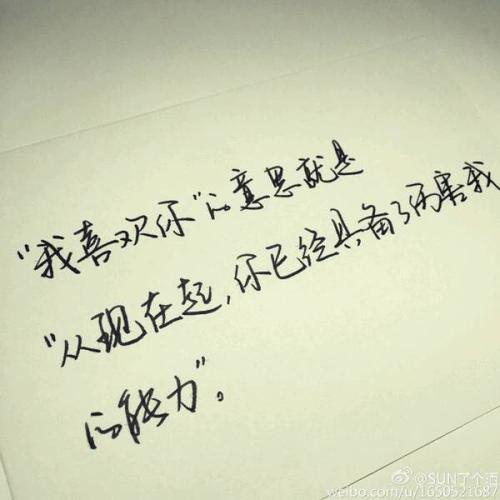 “我喜欢你”的意思就是
“从现在起,你已经具备了伤害我
的能力”。
@SUN了个活
weibo.com/u/1650521687